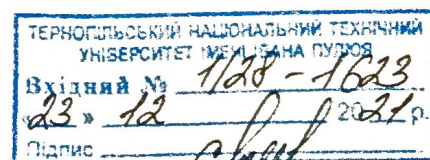 ТЕРНОПІЛЬСЬКИЙ НАЦІОНАЛЬНИЙ ТЕХНІЧНИЙ
УНІВЕРСИТЕТ ІМЕНІ ІВАНА ПУЛЮЯ
Вхідний № 1/28-1623
«23» 12 2021 р.
Підпис